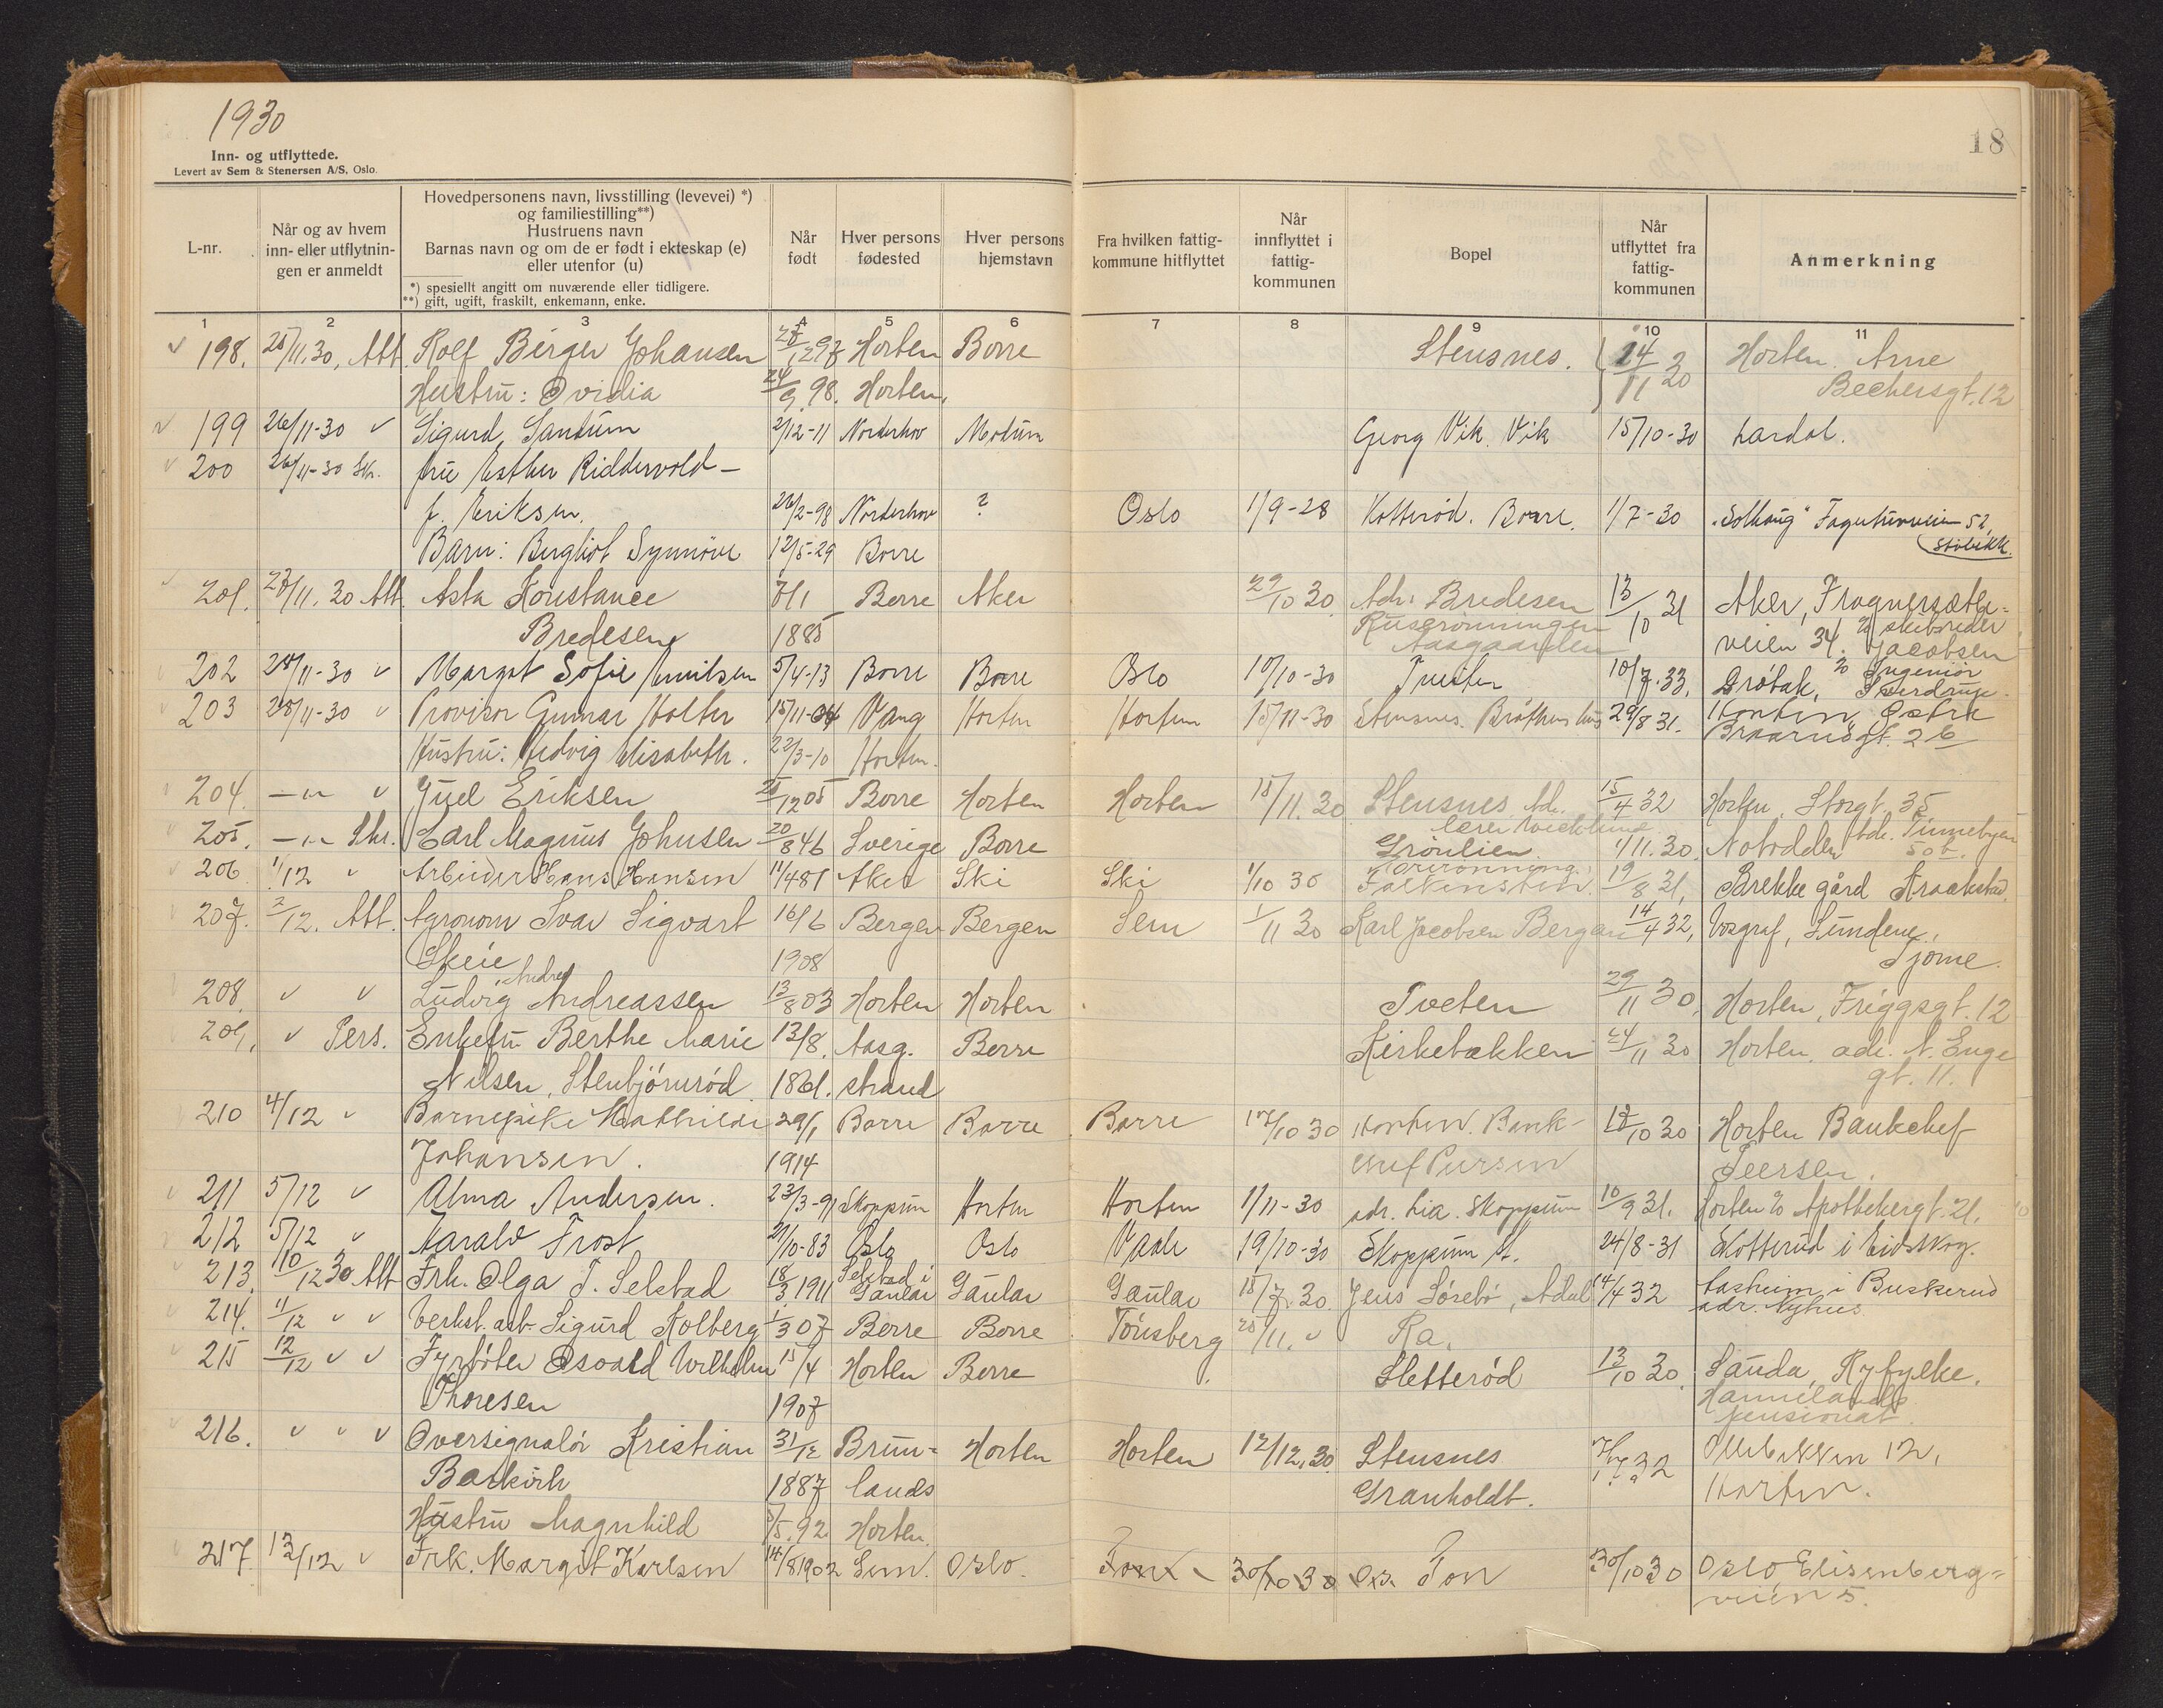 1930
18
Inn- og utflyttede.
Levert av Sem & Stenersen A/S, Oslo.
L-nr.
Når og av hvem inn- eller utflytnin- gen er anmeldt
Hovedpersonens navn, livsstilling (levevei) *)
og familiestilling**)
Hustruens navn
Barnas navn og om de er født i ekteskap (e)
eller utenfor (u)
*) spesiellt angitt om nuværende eller tidligere.
**) gift, ugift, fraskilt, enkemann, enke.
Når født
Hver persons fødested
Hver persons hjemstavn
Fra hvilken fattig- kommune hitflyttet
Når innflyttet i fattig- kommunen
Bopel
Når utflyttet fra fattig- kommunen
Anmerkning
1 2 3 4 5 6 7 8 9 10 11
198. 25/11.30, Att. Rolf Birger Johansen Horten Borre Stensnes. 24/11 30 Horten. Arne
Hustru: Ovidia 24/9.98. Horten. Bechersgt. 12
199 26/11-30 Sigurd Santum 2/12-11 Norderhov Modum Georg Vik. Vik 15/10-30 Lardal.
200 26/11-30 Skr. fru Esther Riddervold-
f. Eriksen. 26/2-98 Norderhov ? Oslo 1/9-28 Kotterød. Borre. 1/7-30 "Solhaug" Fagertunveien 52,
Barn: Bergliot Synnöve 12/5-29 Borre Stabekk.
201. 27/11.30 Att. Asta Konstance 7/1 Borre Aker 29/10 30 Adr: Bredesen 13/10 31 Aker, Frognersæter-
Bredesen 1885 Rusrønningen Aasgaarden veien 34. c/o skibsreder Jacobsen
202 28/11-30 Margot Sofie Emilsen 5/4-13 Borre Borre Oslo 10/10-30 Tveiten 10/7.33. Drøbak, c/o Ingeniør Sverdrup.
203 28/11-30 Provisor Gunnar Holter 15/11-04 Vang Horten Horten 15/11-30 Stensnes. Bråthens hus 29/8 31. Horten, Østre
Hustru: Hedvig Elisabeth. 22/3-10 Horten. Braarudgt. 26
204. -"- Juel Eriksen 25/12 05 Borre Horten Horten 18/11.30 Stensnes Adr. 15/4 32 Horten, Storgt. 35
lærer Wicklund
205. -"- Skr. Carl Magnus Johnsen 20/8 46 Sverige Borre Grönlien 1/11.30. Notodden Adr. Tinnebyen 50b.
206 1/12 Arbeider Hans Hansen 11/4 81 Aker Ski Ski 1/10 30 Falkensten. 19/8 31. Brekke gård Kraakstad.
207. 2/12. Att. Agronom Ivar Sigvart 16/6 Bergen Bergen Sem 1/11 30 Karl Jacobsen Bergan 14/4 32, Vosgraf, Sundene,
Skeie 1908 Tjøme.
208. Ludvig Andreassen 13/8 03 Horten Horten Tveten 29/11 30, Horten, Friggsgt. 12
209. Pers. Enkefru Berthe Marie 13/8. Aasg. Borre Kirkebakken 24/11 30 Horten, adr. N. Enge
Nilsen, Stenbjörnröd 1861. strand gt. 11.
210 4/12 Barnepike Mathilde 29/1 Borre Borre Borre 17/10 30 Horten. Bank- 18/10 30 Horten Bankchef
Johansen. 1914 chef Peersen Peersen.
211 5/12 Alma Andersen. 23/3-91 Skoppum Horten Horten 1/11-30 adr. Lia. Skoppum 10/9 31. Horten c/o Apothekergt. 21.
212 5/12 Harald Frost 21/10-83 Oslo Oslo Vaale 19/10-30 Skoppum St. 24/8-31 Skotterud i Eidskog.
213. 10/12 30 Att Frk. Olga T. Selstad 18/3 1911 Selstad i Gaular Gaular Gaular 15/7.30. Jens Sørebö, Adal 14/4 32 Aasheim i Buskerud
adr. Nyhus
214. 11/12 Verkst. arb. Sigurd Kolberg 1/3 07 Borre Borre Tönsberg 25/11. Ra.
215 12/12 Fyrböter Osvald Wilhelm 15/4 Horten Borre Sletterød 13/10 30. Sauda, Ryfylke.
Thoresen 1907 Hammelands pensionat.
216. Oversignalör Kristian 31/12 Brun- Horten Horten 12/12.30. Stensnes 7/7 32 Ollebakken 12,
1887 lands Granholdt. Horten.
Hustru Magnhild 3/5.92 Horten.
217. 13/12 Frk. Margit Karlsen 14/8 1902 Sem. Oslo. Fon 30/10 30 Fon 30/10 30 Oslo Elisenberg-
veien 5.